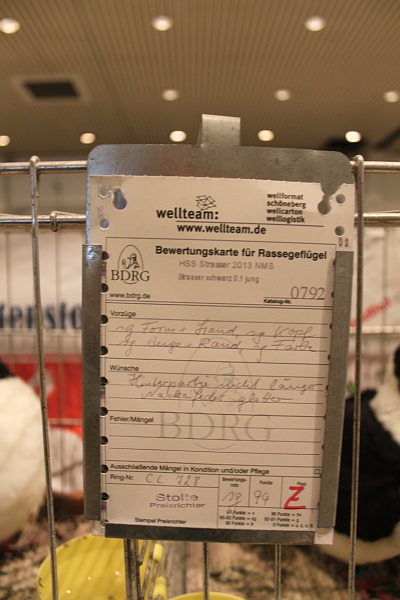 wellteam:
wellformat
schöneberg
wellcarton
welllogistik
www.wellteam.de
Bewertungskarte für Rassegeflügel
HSS Strasser 2013 NMS
Strasser schwarz 0,1 jung
BDRG
www.bdrg.de
Katalog-Nr. 0792
Vorzüge
sg Form + Stand, sg Kopf
sg Auge + Rand, sg Farbe
Wünsche
Hinterpartie nicht länger
Nackenfeder glatter
Fehler/Mängel
BDRG
Ausschließende Mängel in Condition und/oder Pflege
Ring-Nr. CL 728
Bewertungsnote
Punkte
Preis
Stolte
Preisrichter
sg 94 Z
Stempel Preisrichter
97 Punkte = v
96 Punkte = hv